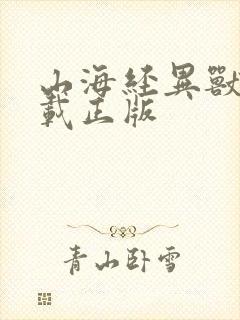 山海經異獸
載正版
青山卧雪